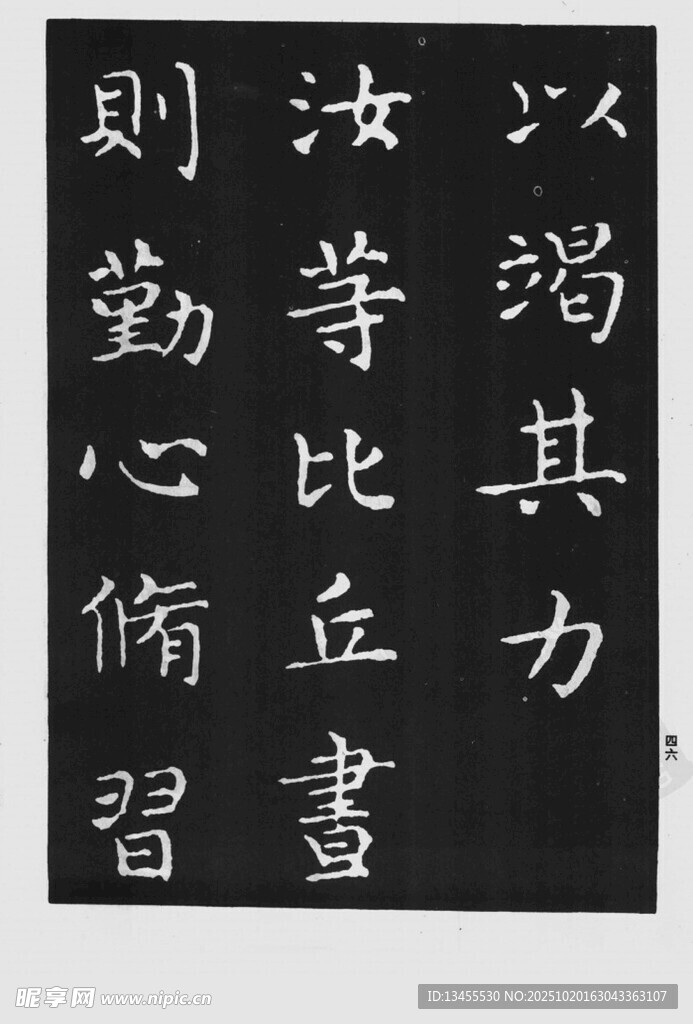 以竭其力
汝等比丘晝
則勤心脩習
四六
昵享网 www.nipic.cn
ID:13455530 NO:20251020163043363107